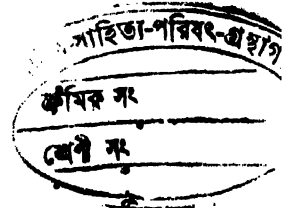 সাহিত্য-পরিষৎ-গ্রন্থাগ
ক্রমিক সং
শ্রেণী সং